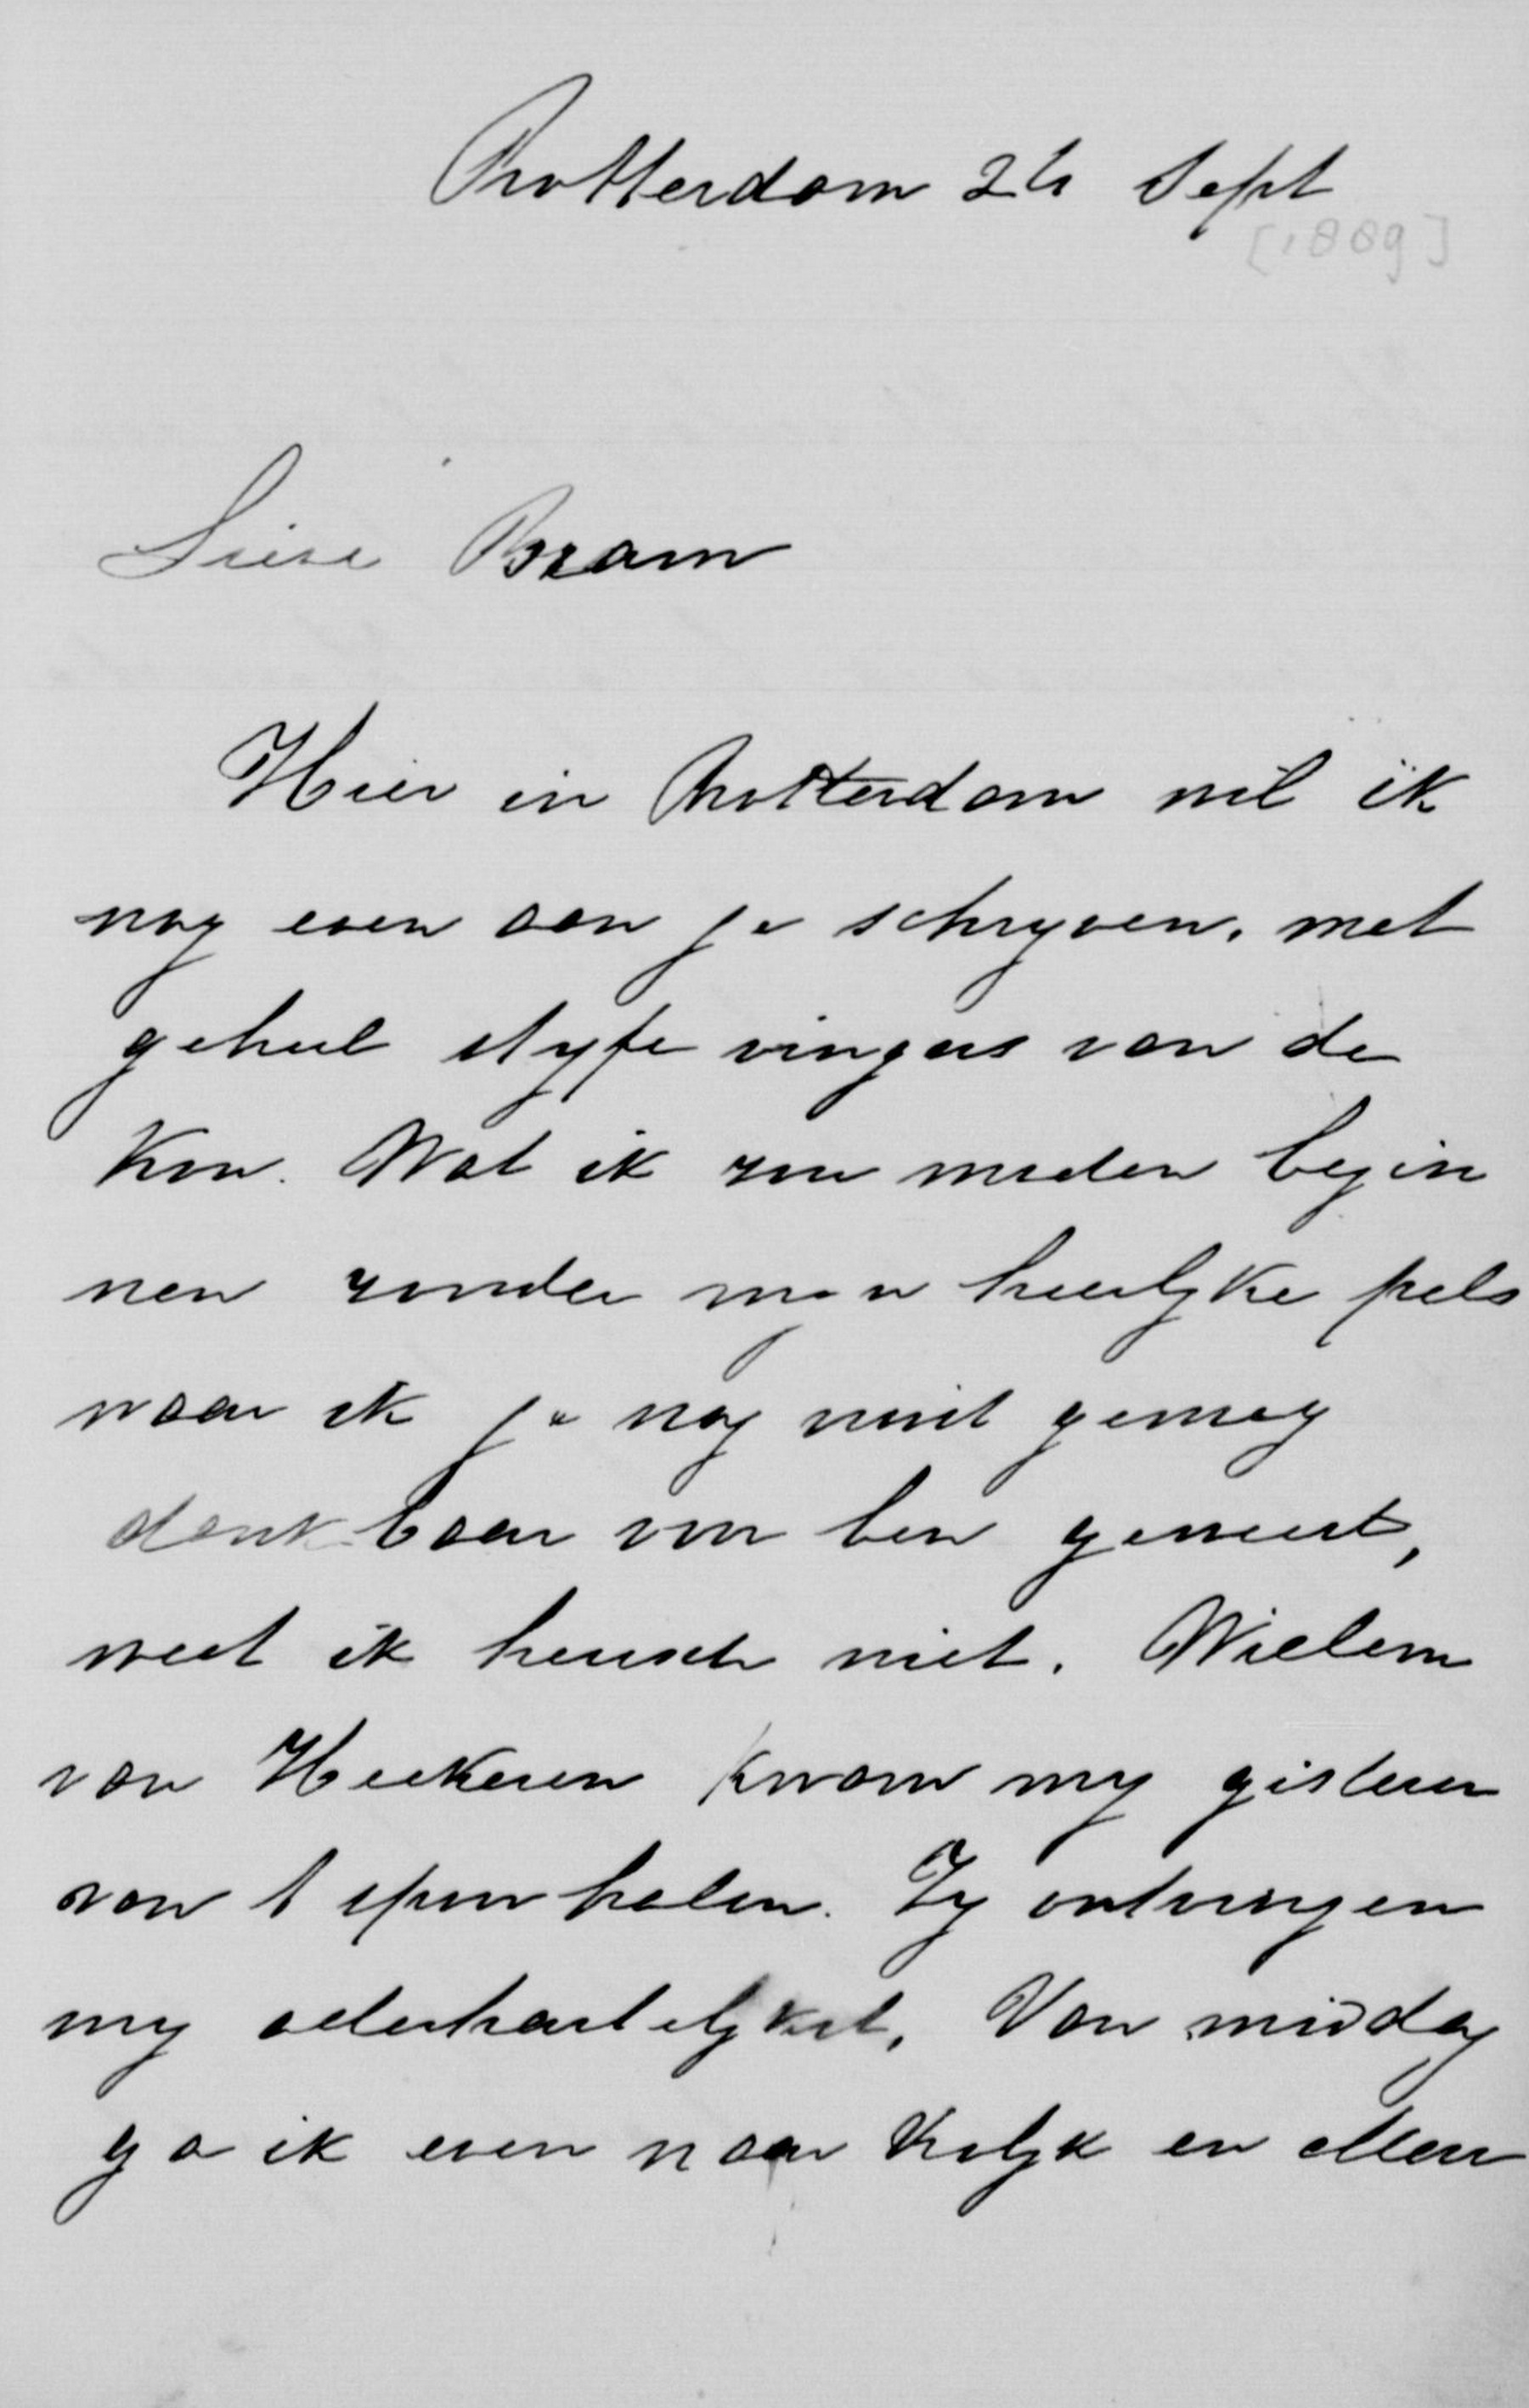 Rotterdam 26 Sept
[1889]
Lieve Bram
Hier in Rotterdam wil ik
nog even aan je schryven, met
geheel styfe vingers van de
kou. Wat ik zou moeten begin
nen zonder myn heerlyke pels
waar ik je nog nooit genoeg
dankbaar voor ben geweest,
weet ik heusch niet. Willem
van Heekeren kwam my gisteren
van t spoor halen. Zy ontvingen
my allerhartelykst. Van middag
ga ik even naar Kolyk en